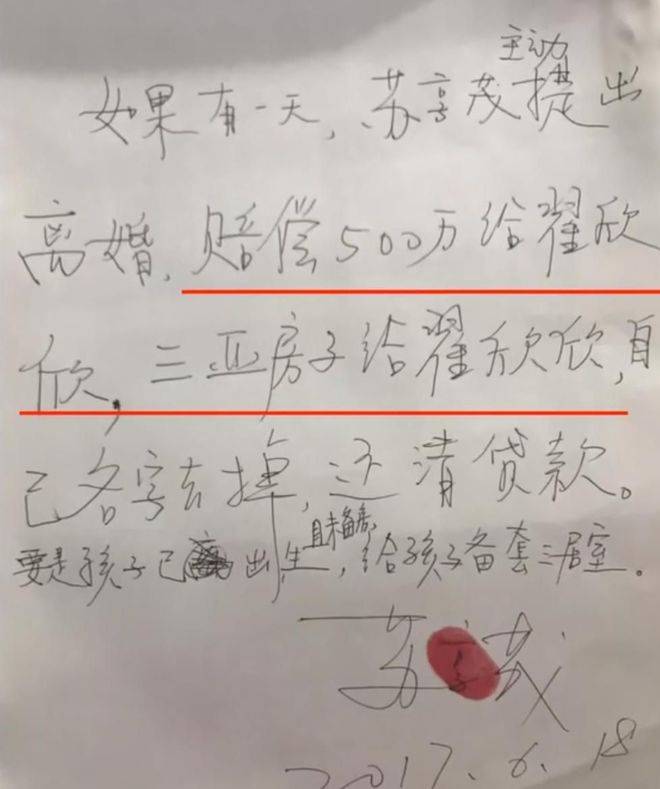 如果有一天,苏享茂主动提出
离婚,赔偿500万给翟欣
欣,三亚房子给翟欣欣,自
己名字去掉,还清贷款。
要是孩子已出生,且未备房,给孩子备套三居室。
苏享茂
2017.6.18